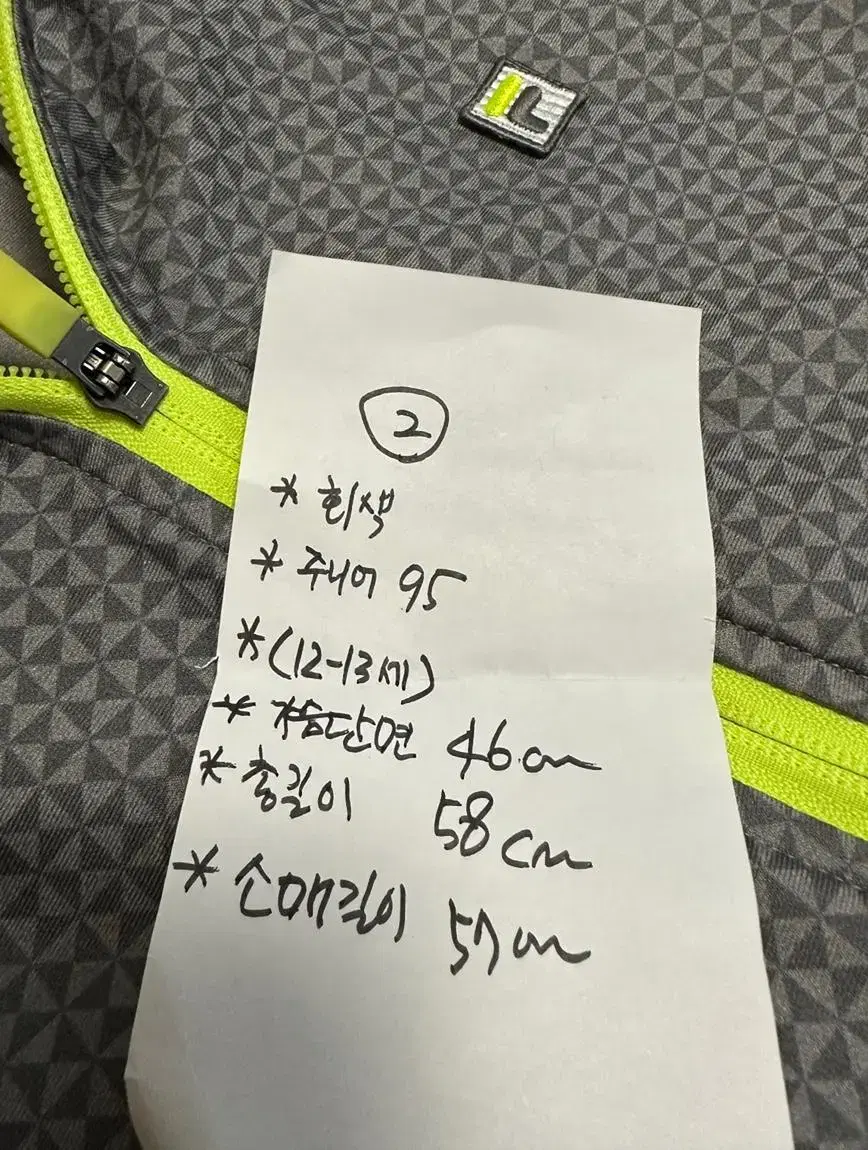 ②
* 회색
* 주니어 95
* (12-13세)
* 가슴단면 46cm
* 총길이 58cm
* 소매길이 57cm